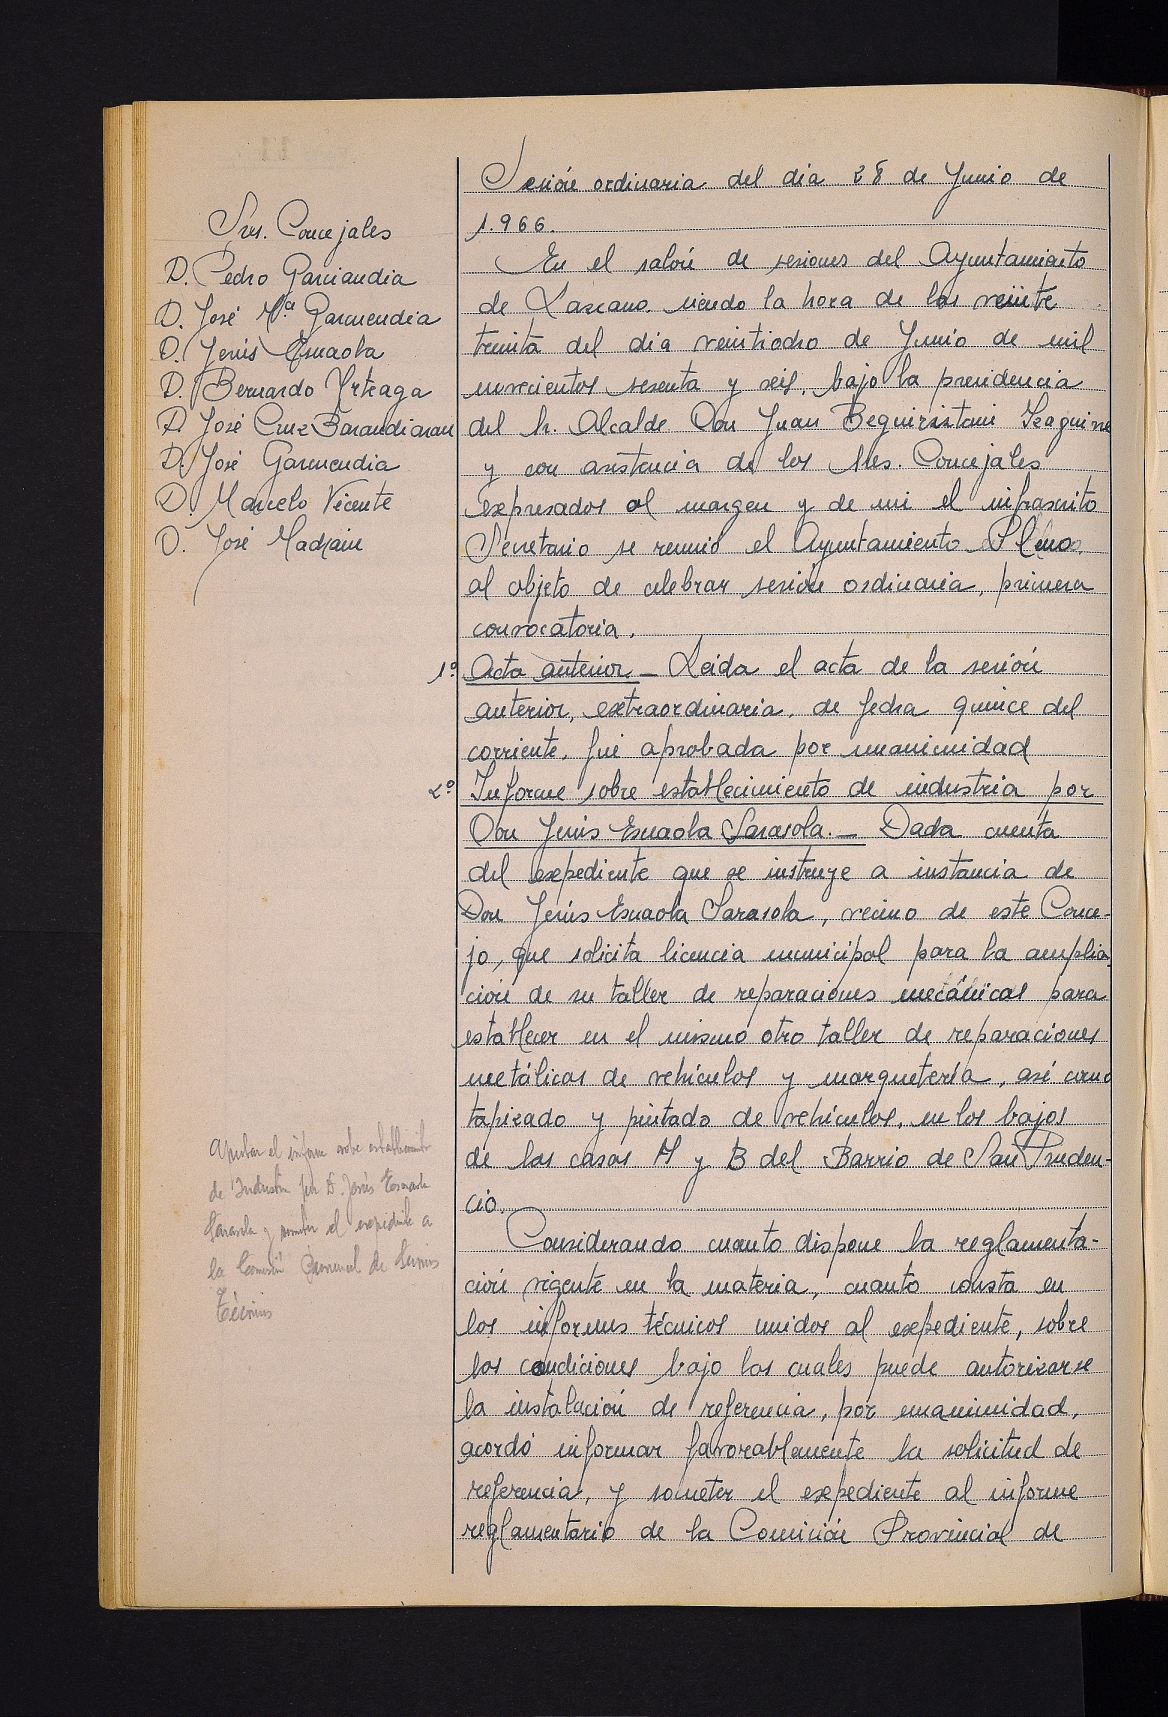 Sesión ordinaria del dia 28 de Junio de
1.966.
Srs. Concejales
D. Pedro Garciandia
D. José Mª Garmendia
D. Jesús Esnaola
D. Bernardo Urteaga
D. José Cruz Barandiaran
D. José Garmendia
D. Marcelo Vicente
D. José
En el salón de sesiones del Ayuntamiento
de Lazcano, siendo la hora de las veinte
treinta del dia veintiocho de Junio de mil
novecientos sesenta y seis, bajo la presidencia
del Sr. Alcalde Don Juan Beguiristain
y con asistencia de los Sres. Concejales
expresados al margen y de mi el infrascrito
Secretario se reunió el Ayuntamiento Pleno
al objeto de celebrar sesión ordinaria, primera
convocatoria.
1º Acta anterior — Leida el acta de la sesión
anterior, extraordinaria, de fecha quince del
corriente, fué aprobada por unanimidad
2º Informe sobre establecimiento de industria por
Don Jesús Esnaola Sarasola. — Dada cuenta
del expediente que se instruye a instancia de
Don Jesús Esnaola Sarasola, vecino de este Conce-
jo, que solicita licencia municipal para la amplia-
ción de su taller de reparaciones mecánicas para
establecer en el mismo otro taller de reparaciones
metálicas de vehículos y marquetería, asi como
tapizado y pintado de vehículos, en los bajos
de las casas A y B del Barrio de San Pruden-
cio.
Considerando cuanto dispone la reglamenta-
ción vigente en la materia, cuanto consta en
los informes técnicos unidos al expediente, sobre
las condiciones bajo las cuales puede autorizarse
la instalación de referencia, por unanimidad,
acordó informar favorablemente la solicitud de
referencia, y someter el expediente al informe
reglamentario de la Comisión Provincial de
Aprobar el informe sobre establecimiento
de Industria por D. Jesús Esnaola
Sarasola y remitir el expediente a
la Comisión Provincial de Servicios
Técnicos